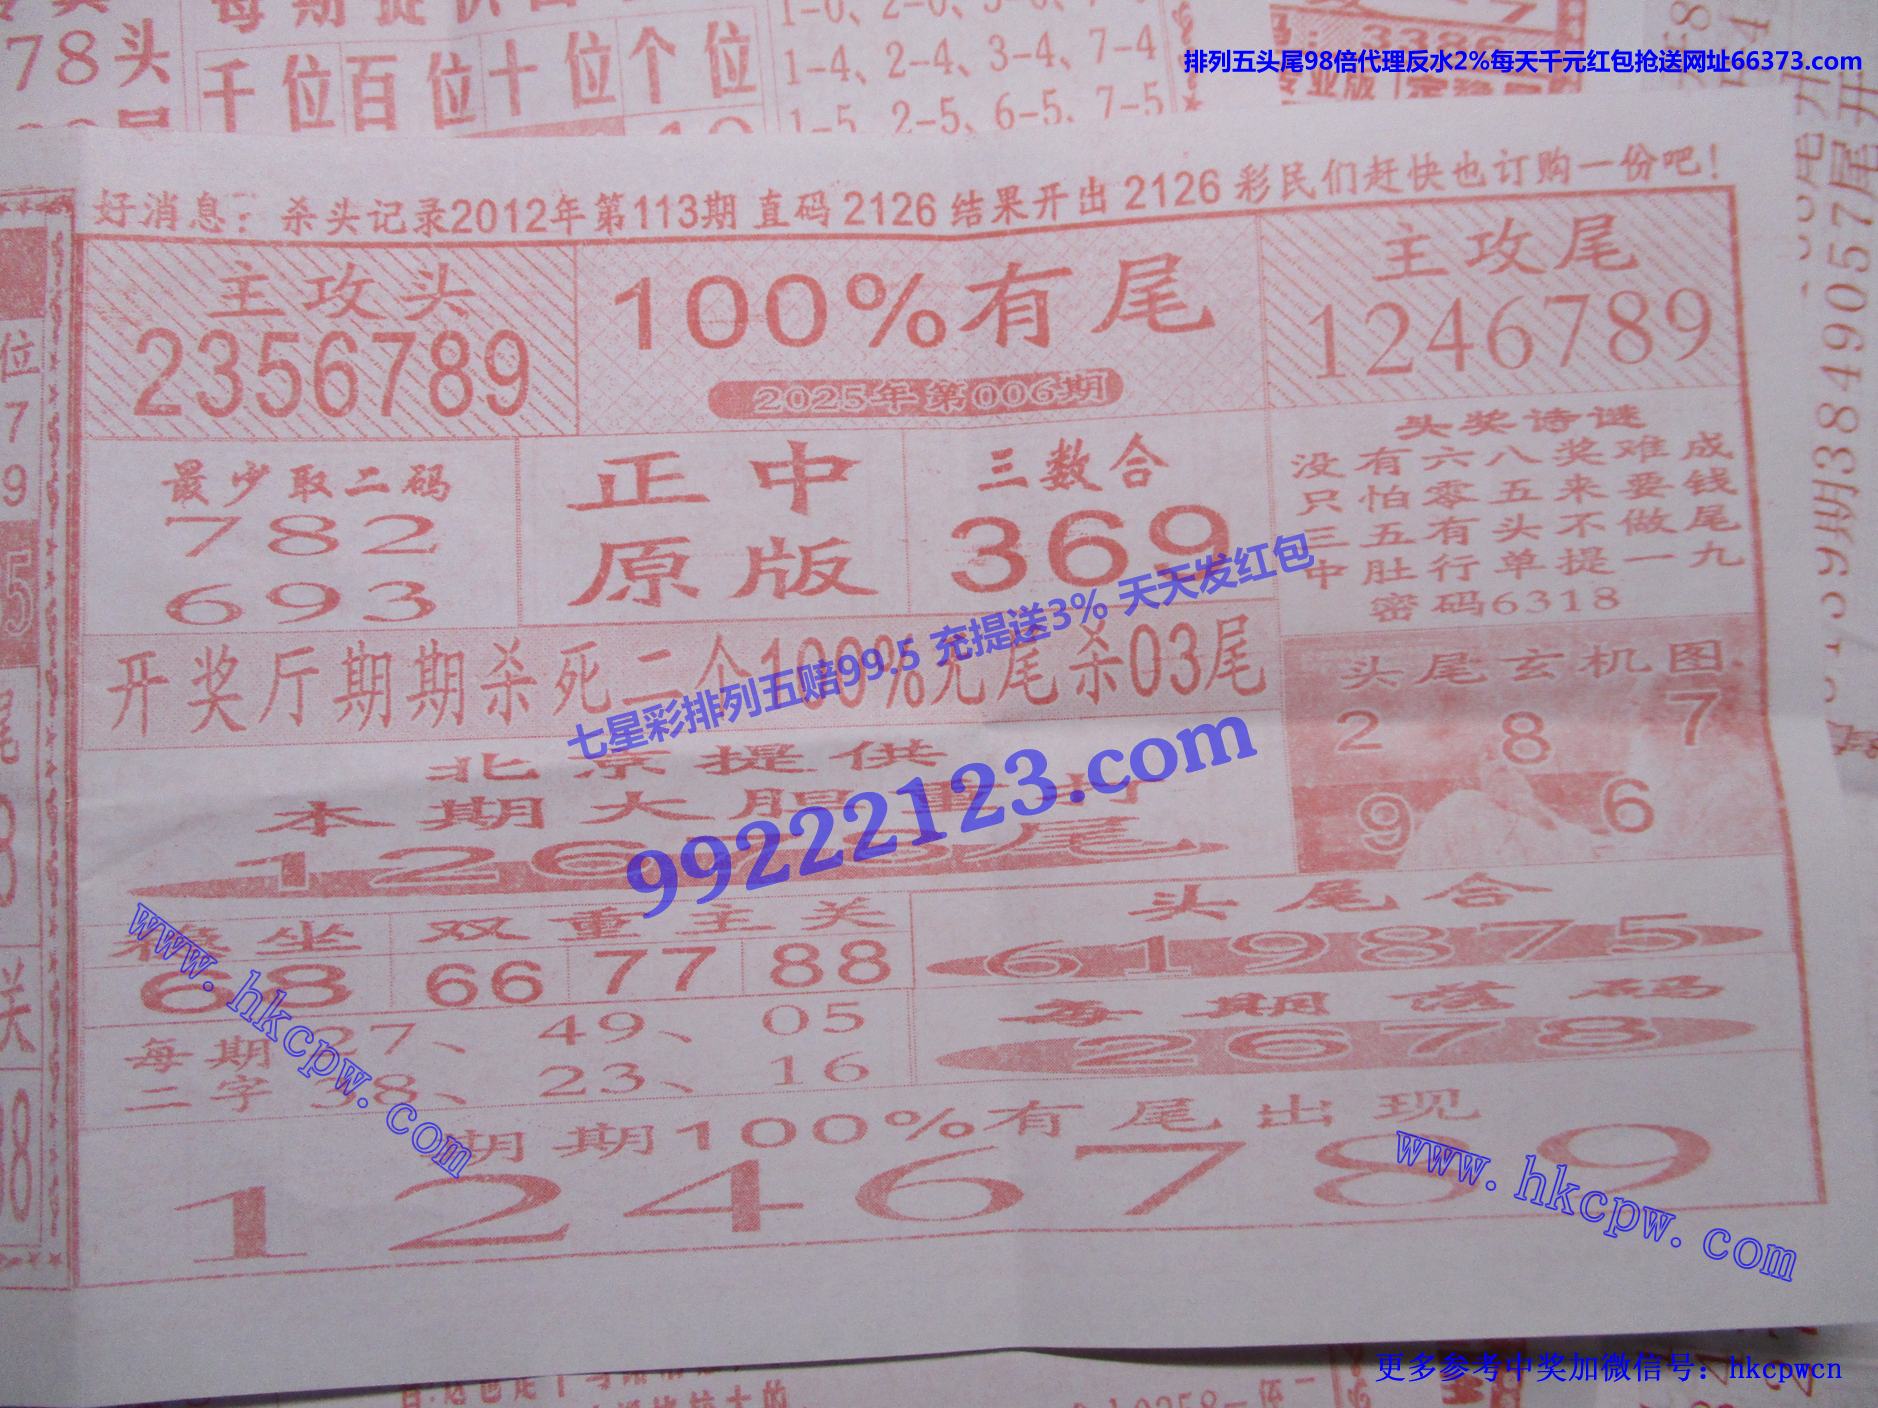 78头
千位百位十位个位
1-4、2-4、3-4、7-4
1-5、2-5、6-5、7-5
排列五头尾98倍代理反水2%每天千元红包抢送网址66373.com
好消息：杀头记录2012年第113期 直码 2126 结果开出 2126 彩民们赶快也订购一份吧！
主攻头
2356789
100%有尾
2025年第006期
主攻尾
1246789
最少取二码
782
693
正中
原版
三数合
369
头奖诗谜
没有六八奖难成
只怕零五来要钱
三五有头不做尾
中肚行单提一九
密码6318
开奖厅期期杀死二个100%无尾杀03尾
七星彩排列五赔99.5 充提送3% 天天发红包
99222123.com
头尾玄机图
2 8 7
9 6
北京提供
本期大胆
尾
坐
68
双重主关
66 77 88
头尾合
619875
每期 27、49、05
二字 38、23、16
每期落码
2678
期期100%有尾出现
1246789
www.hkcpw.com
www.hkcpw.com
39期384 9057尾开
更多参考中奖加微信号：hkcpwcn